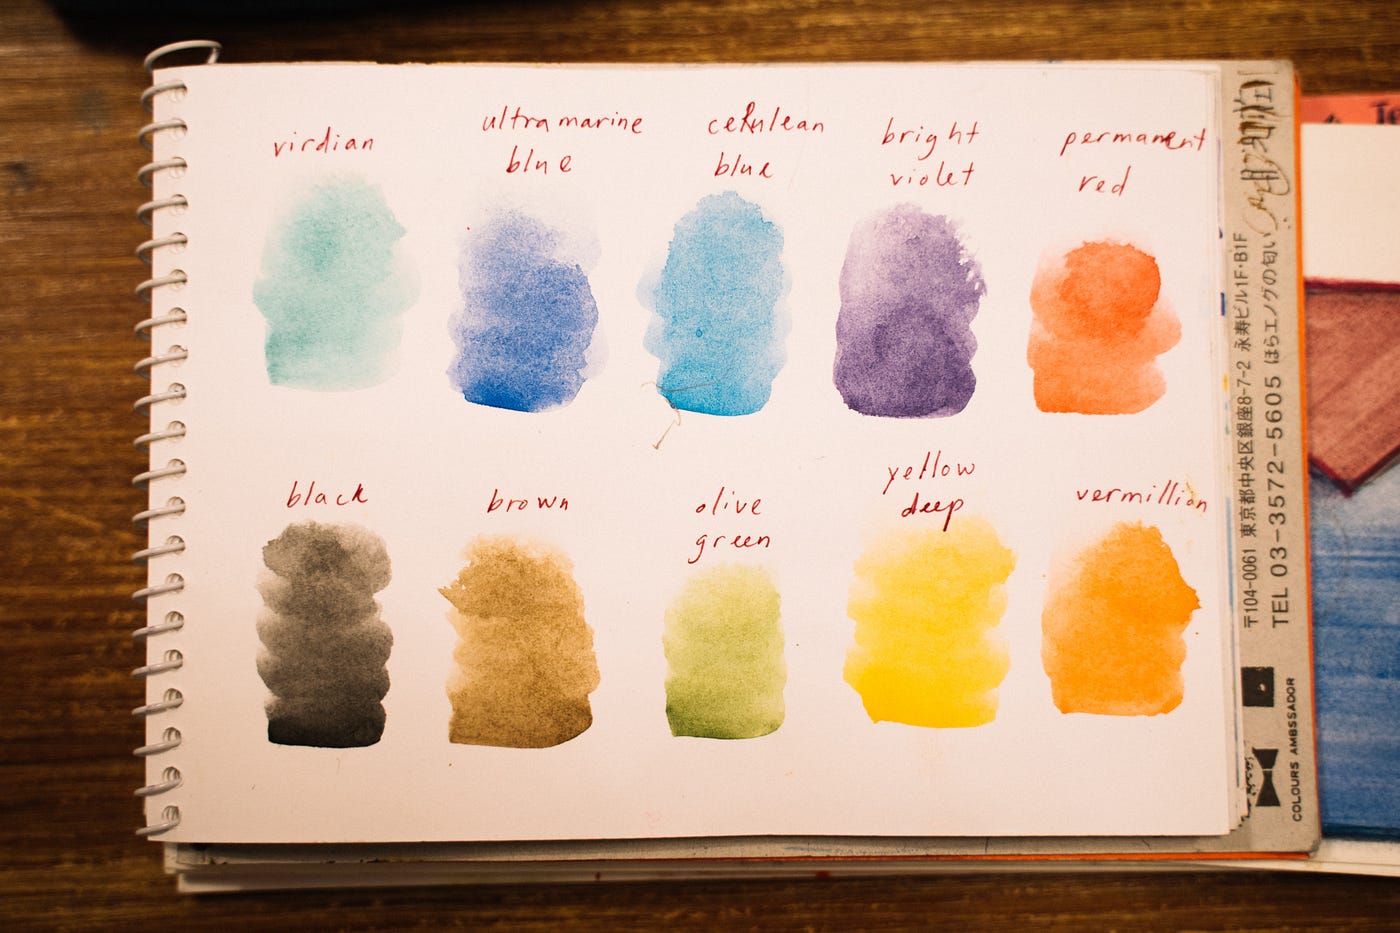 virdian
ultramarine
blue
cerulean
blue
bright
violet
permanent
red
black
brown
olive
green
yellow
deep
vermillian
〒104-0061 東京都中央区銀座8-7-2 永寿ビル1F・B1F
TEL 03-3572-5605 ほらエノグの匂い
COLOURS AMBSSADOR